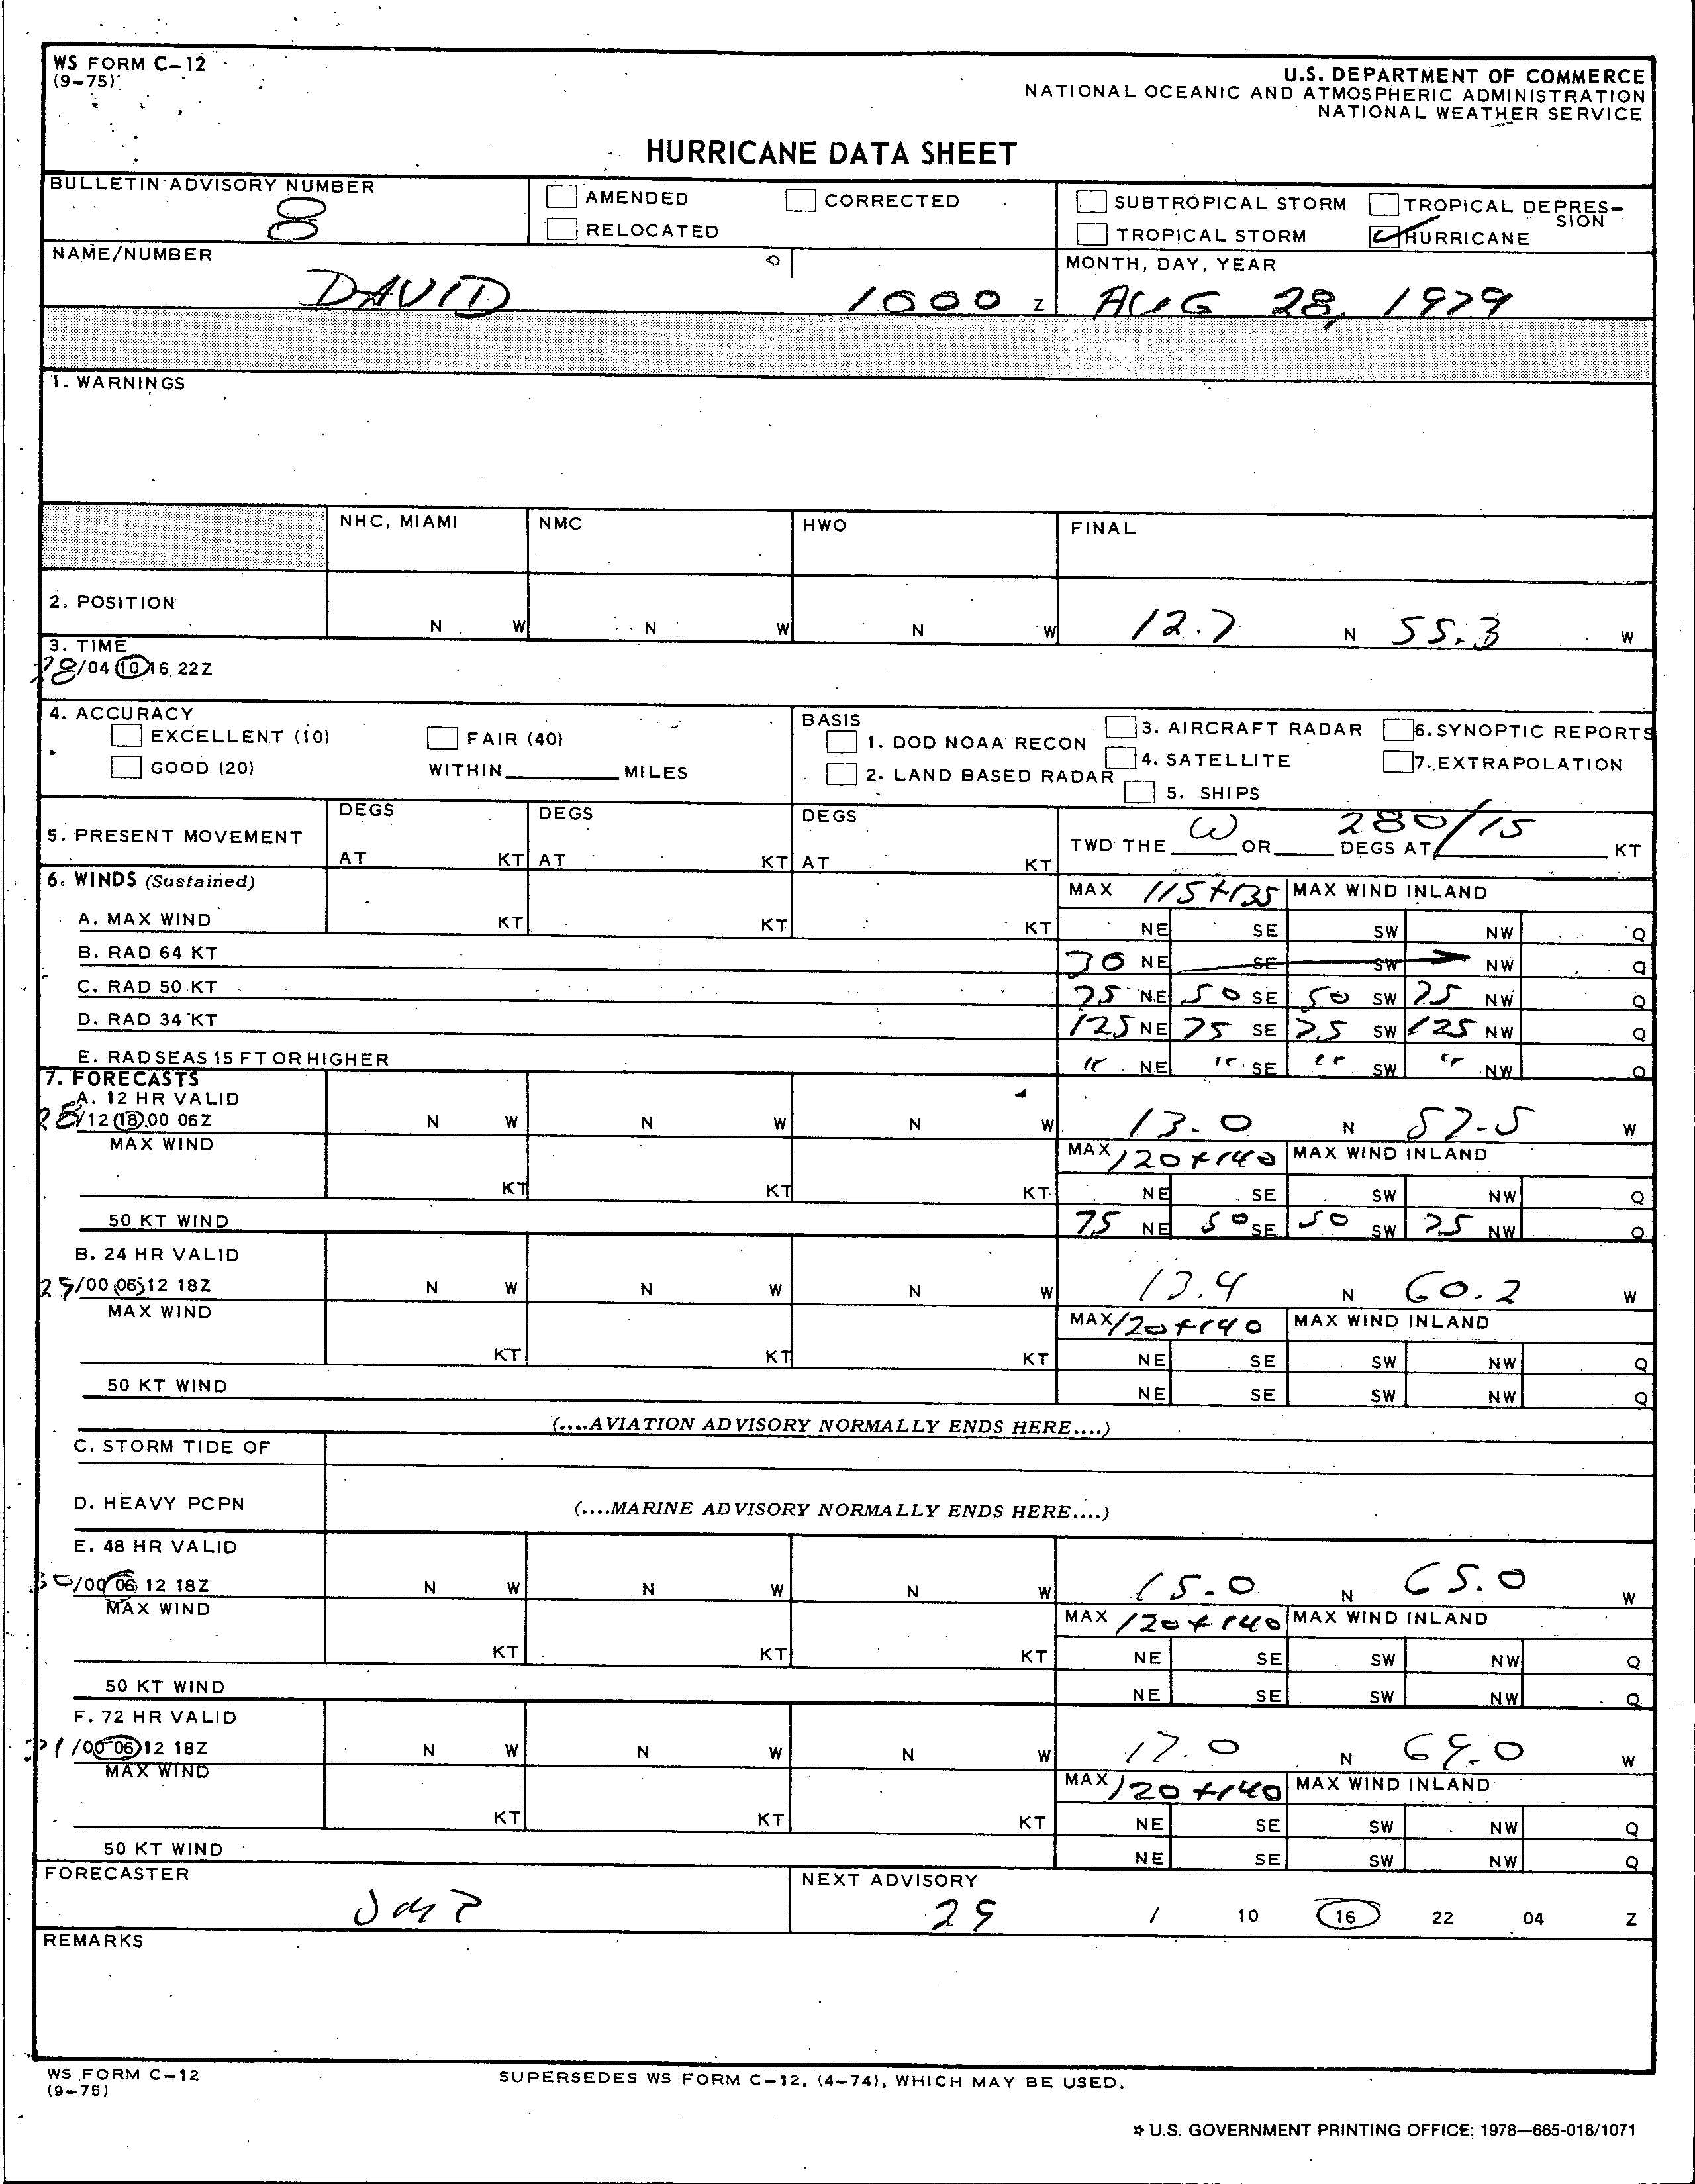 WS FORM C-12
(9-75)
U.S. DEPARTMENT OF COMMERCE
NATIONAL OCEANIC AND ATMOSPHERIC ADMINISTRATION
NATIONAL WEATHER SERVICE
HURRICANE DATA SHEET
BULLETIN ADVISORY NUMBER
8
AMENDED CORRECTED
RELOCATED
SUBTROPICAL STORM TROPICAL DEPRES-SION
TROPICAL STORM HURRICANE
NAME/NUMBER
DAVID
1000 Z
MONTH, DAY, YEAR
AUG 28, 1979
1. WARNINGS
NHC, MIAMI NMC HWO FINAL
2. POSITION
N W N W N W 12.7 N 55.3 W
3. TIME
28/04 10 16 22Z
4. ACCURACY
EXCELLENT (10) FAIR (40)
GOOD (20) WITHIN MILES
BASIS
1. DOD NOAA RECON 3. AIRCRAFT RADAR 6. SYNOPTIC REPORTS
2. LAND BASED RADAR 4. SATELLITE 7. EXTRAPOLATION
5. SHIPS
5. PRESENT MOVEMENT
DEGS DEGS DEGS
AT KT AT KT AT KT
TWD THE W OR 280/15 DEGS AT KT
6. WINDS (Sustained)
MAX 115+135 MAX WIND INLAND
A. MAX WIND KT KT KT NE SE SW NW Q
B. RAD 64 KT 30 NE SE SW NW Q
C. RAD 50 KT 75 NE 50 SE 50 SW 75 NW Q
D. RAD 34 KT 125 NE 75 SE 75 SW 125 NW Q
E. RAD SEAS 15 FT OR HIGHER " NE " SE " SW " NW Q
7. FORECASTS
A. 12 HR VALID
28/12 18 00 06Z N W N W N W 13.0 N 57.5 W
MAX WIND
MAX 120+140 MAX WIND INLAND
KT KT KT NE SE SW NW Q
50 KT WIND 75 NE 50 SE 50 SW 75 NW Q
B. 24 HR VALID
29/00 06 12 18Z N W N W N W 13.4 N 60.2 W
MAX WIND
MAX 120+140 MAX WIND INLAND
KT KT KT NE SE SW NW Q
50 KT WIND NE SE SW NW Q
(....AVIATION ADVISORY NORMALLY ENDS HERE....)
C. STORM TIDE OF
D. HEAVY PCPN
(....MARINE ADVISORY NORMALLY ENDS HERE....)
E. 48 HR VALID
30/00 06 12 18Z N W N W N W 15.0 N 65.0 W
MAX WIND
MAX 120+140 MAX WIND INLAND
KT KT KT NE SE SW NW Q
50 KT WIND NE SE SW NW Q
F. 72 HR VALID
31/00 06 12 18Z N W N W N W 17.0 N 69.0 W
MAX WIND
MAX 120+140 MAX WIND INLAND
KT KT KT NE SE SW NW Q
50 KT WIND NE SE SW NW Q
FORECASTER
NEXT ADVISORY
29 / 10 16 22 04 Z
REMARKS
WS FORM C-12
(9-75)
SUPERSEDES WS FORM C-12, (4-74), WHICH MAY BE USED.
☆ U.S. GOVERNMENT PRINTING OFFICE: 1978-665-018/1071